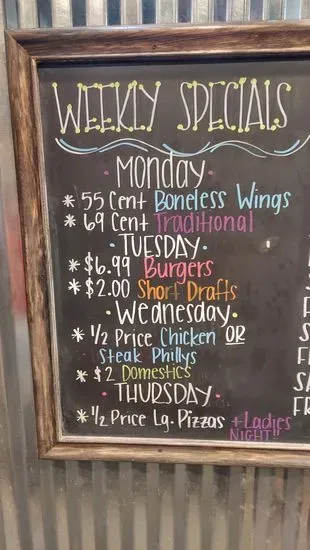 WEEKLY SPECIALS
· Monday ·
* 55 Cent Boneless Wings
* 69 Cent Traditional
· TUESDAY ·
* $6.99 Burgers
* $2.00 Short Drafts
· Wednesday ·
* 1/2 Price Chicken OR
Steak Phillys
* $2 Domestics
· THURSDAY ·
* 1/2 Price Lg. Pizzas + Ladies
NIGHT!!